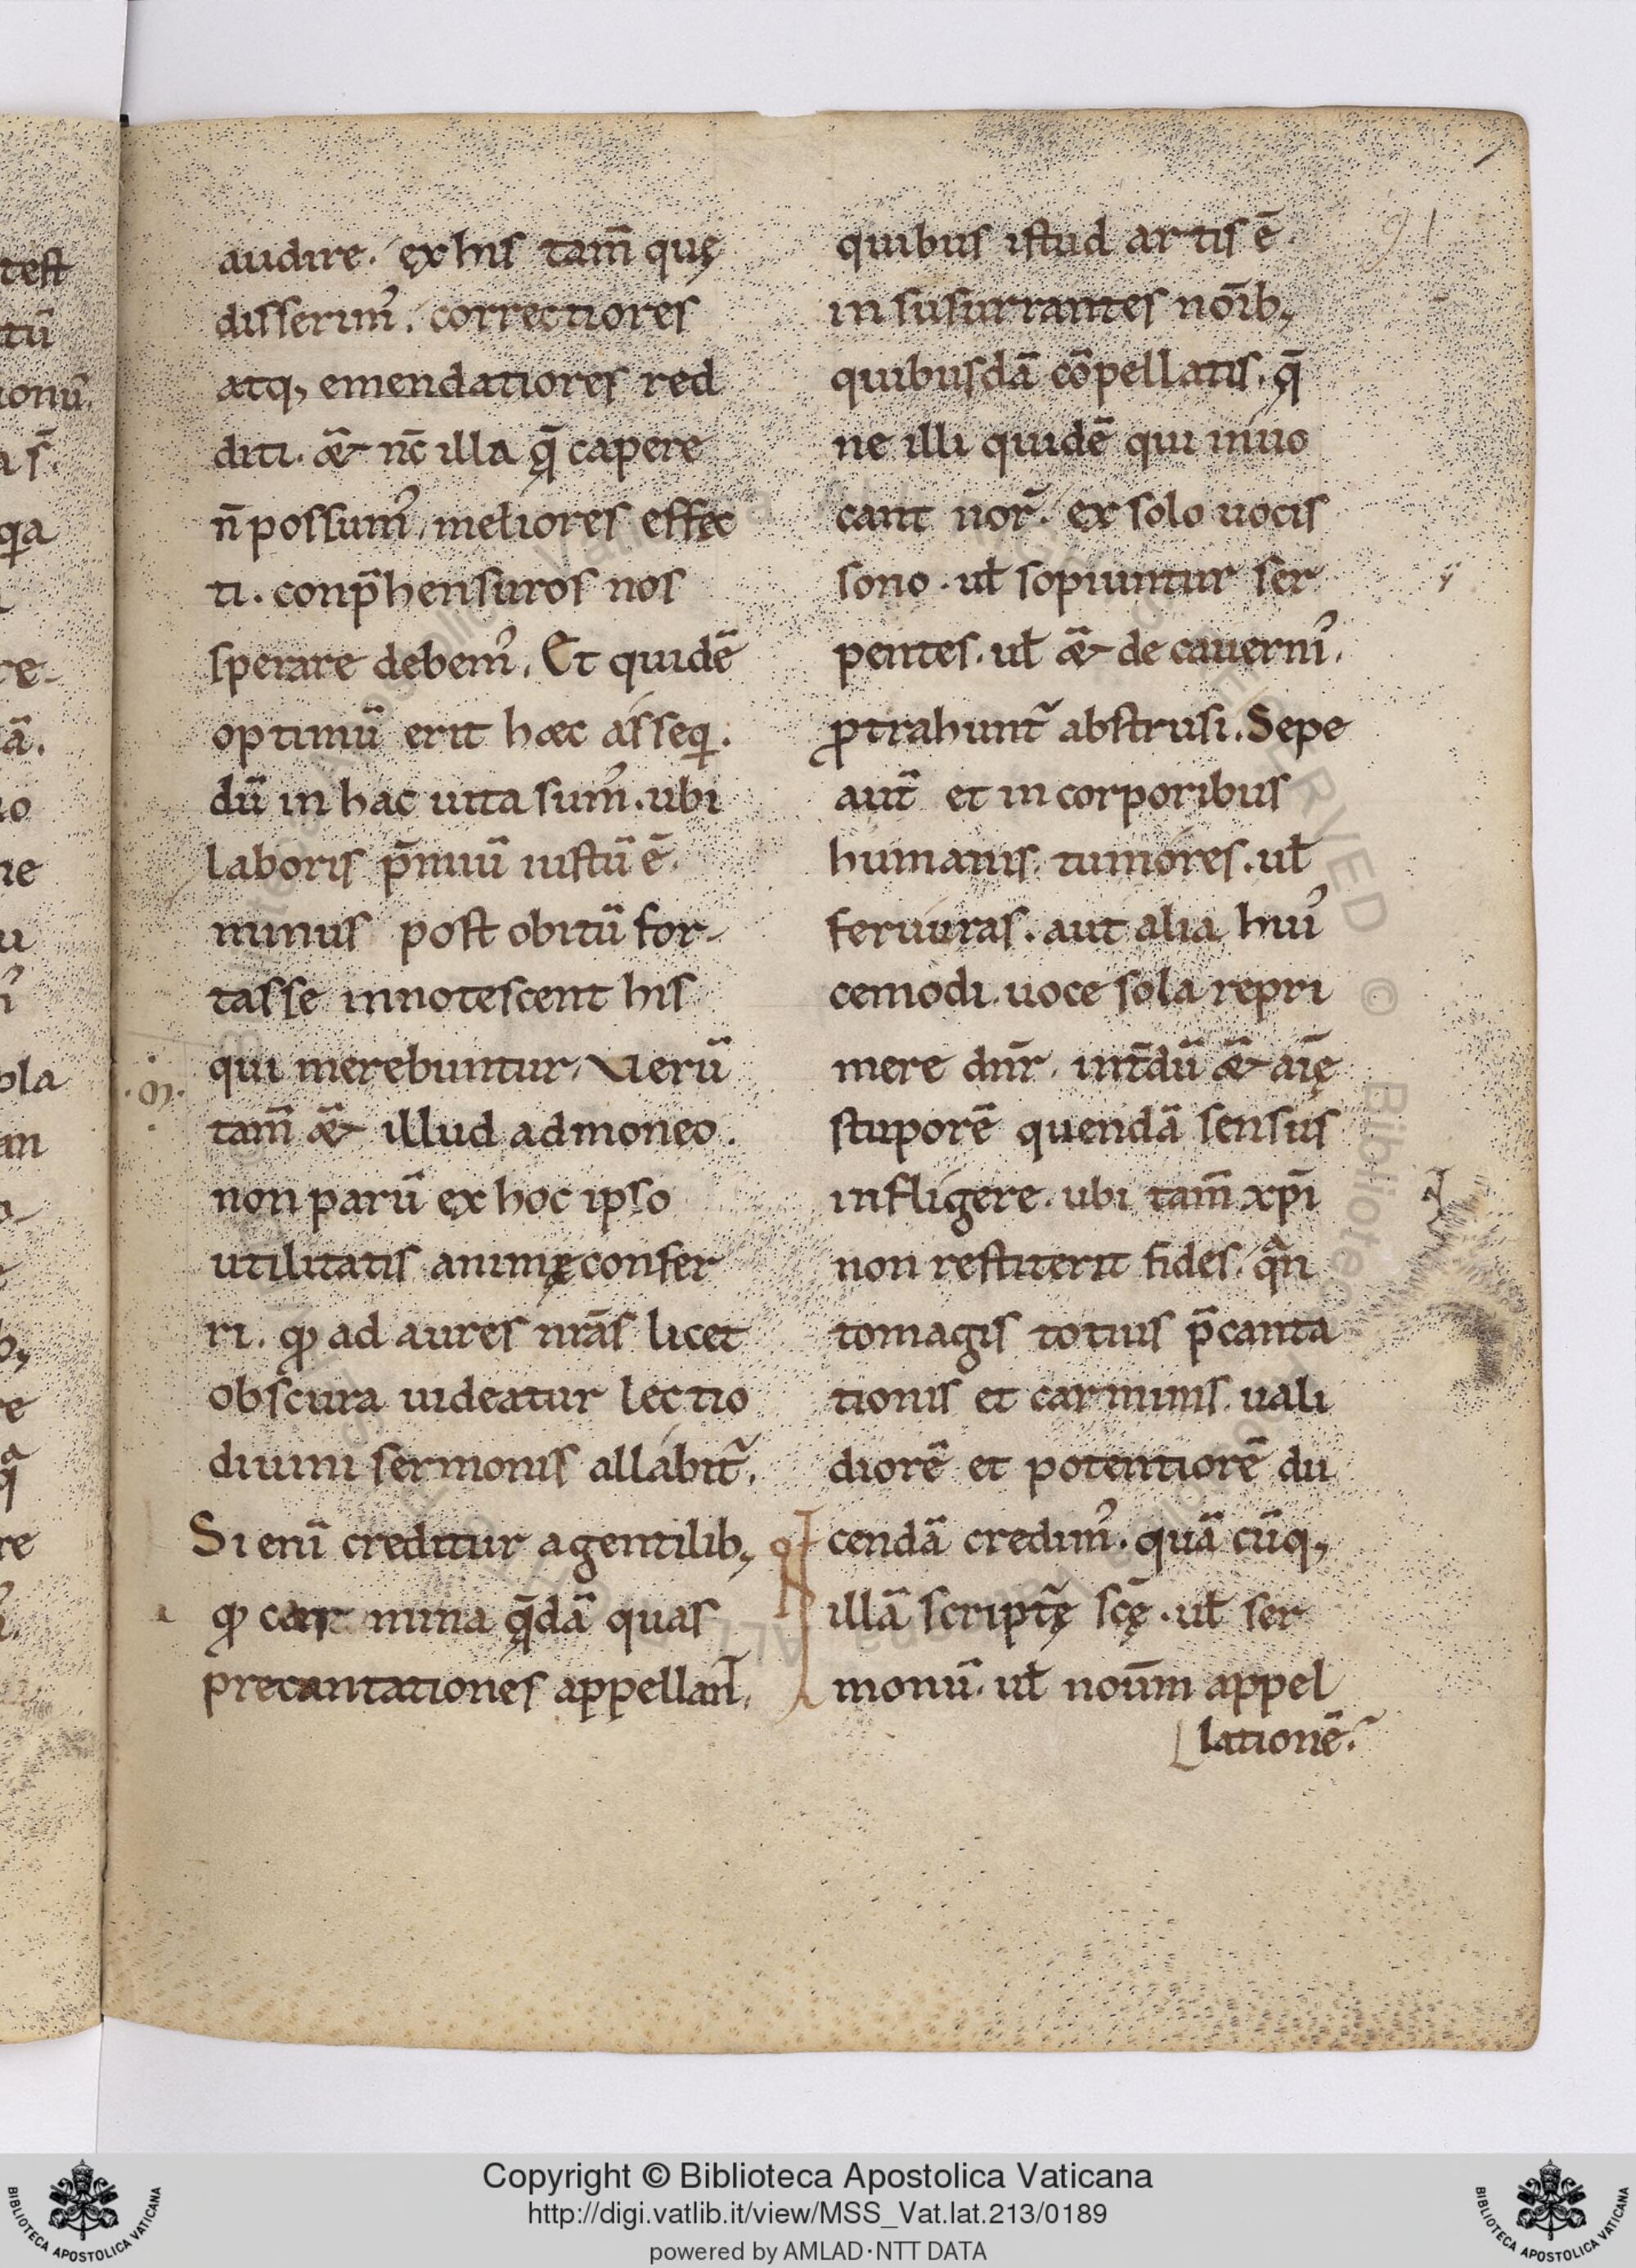 audire. ex his tam̄ quę
disserim᾿. correctiores
atq; emendatiores red
diti. &̄ nc̄ illa q̄ capere
n̄ possum᾿. meliores effec
ti. conp̄hensuros nos
sperare debem᾿. Et quidē
optimū erit hæc asseqi.
dū in hac uita sum᾿. ubi
laboris p̄miū iustū ē.
minus post obitū for-
tasse innotescent his
qui merebuntur. Verū
tam̄ &̄ illud admoneo.
non parū ex hoc ipso
utilitatis animę confer
ri. qđ ad aures nr̄as licet
obscura uideatur lectio
diuini sermonis allabit᷑.
Si eni̅ creditur a gentilib;
qđ carmina q̄dā quas
precantationes appellant,
quibus istud artis ē
insusurrantes noīb;
quibusdā cōpellatis. q̄
ne illi quidē qui inuo
cant nor̄. ex solo uocis
sono. ul̄ sopiuntur ser
pentes. ul̄ &̄ de cauerni᾿.
ꝓtrahunt᷑ abstrusi. Sepe
aut̄ et in corporibus
humanis. tumores. ul̄
feruuras. aut alia hui᾿
cemodi. uoce sola repri
mere dn̄r. int̄dū &̄ aīę
stuporē quendā sensus
infligere. ubi tam̄ xp̄i
non restiterit fides. qᵃn
tomagis totius p̄canta
tionis et carminis. uali
diorē et potentiorē du
cendā credim᾿. quācūq;
illā scriptę sc̄ę. ul̄ ser
monū. ul̄ noūm appel
lationē.
Copyright © Biblioteca Apostolica Vaticana
http://digi.vatlib.it/view/MSS_Vat.lat.213/0189
powered by AMLAD·NTT DATA